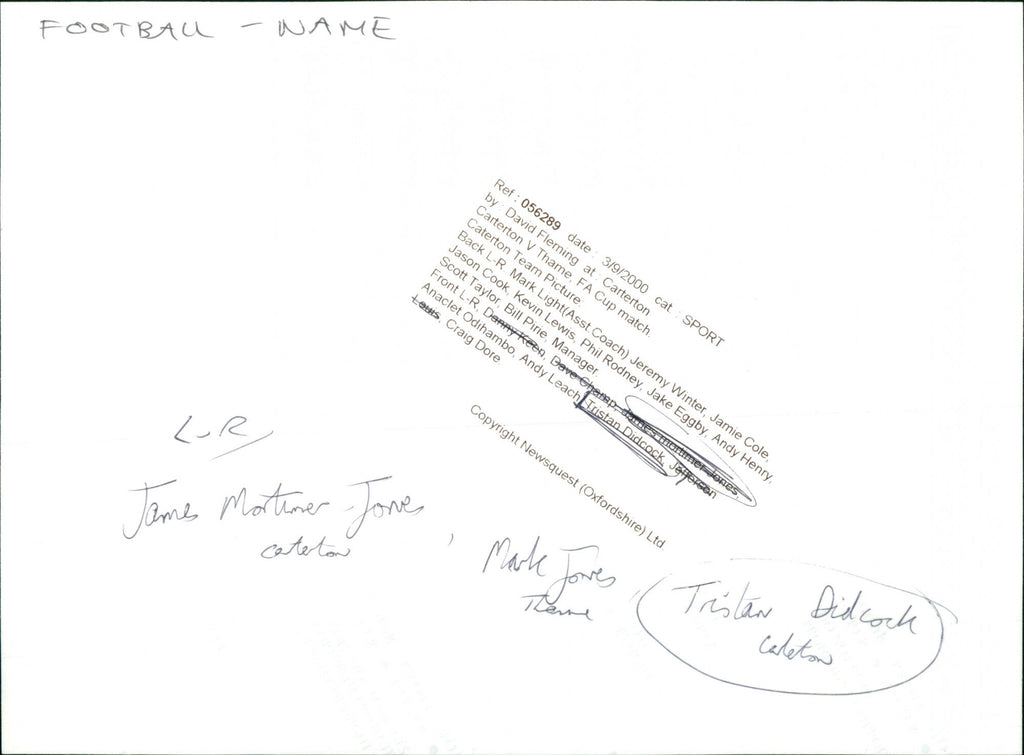 FOOTBALL - NAME
Ref: 056289 date: 3/9/2000 cat: SPORT
by: David Fleming at: Carterton
Carterton V Thame, FA Cup match.
Caterton Team Picture.
Back L-R, Mark Light(Asst.Coach) Jeremy Winter, Jamie Cole,
Jason Cook, Kevin Lewis, Phil Rodney, Jake Eggby, Andy Henry,
Scott Taylor, Bill Pirie, Manager.
Front L-R, Danny Keen, Dave Champ, James mortimer-Jones
Anaclet Odihambo, Andy Leach, Tristan Didcock, Jefferson
Louis, Craig Dore.
Copyright Newsquest (Oxfordshire) Ltd
L-R
James Mortimer-Jones
Carterton
, Mark Jones
Thame
, Tristan Didcock
Carleton